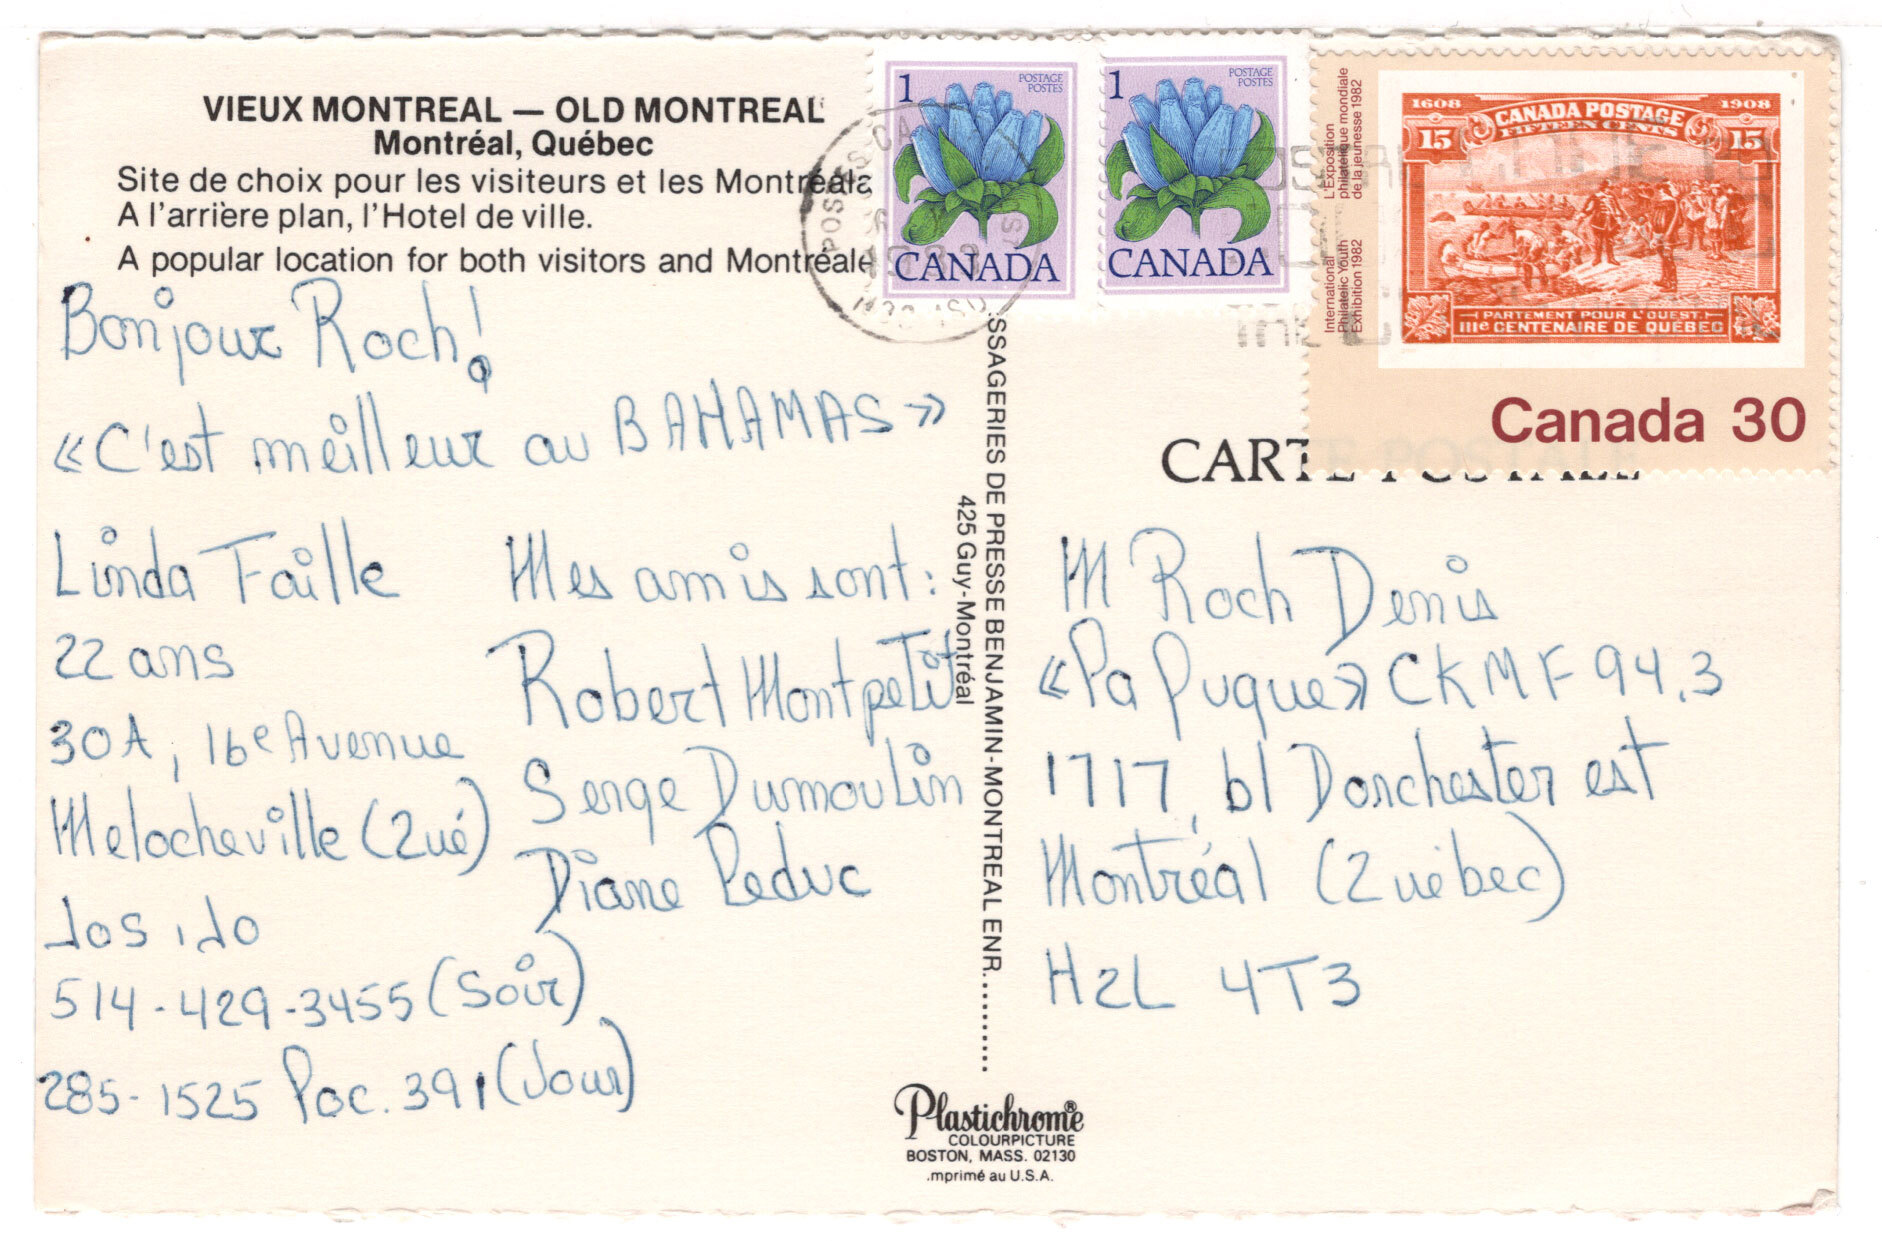 VIEUX MONTREAL — OLD MONTREAL
Montréal, Québec
Site de choix pour les visiteurs et les Montréala
A l'arrière plan, l'Hotel de ville.
A popular location for both visitors and Montreale
Bonjour Roch!
«C'est meilleur au BAHAMAS»
Linda Faille
22 ans
30A, 16e Avenue
Melocheville (Qué)
J0S 1J0
514-429-3455 (Soir)
285-1525 Poc. 391 (Jour)
Mes amis sont:
Robert Montpetit
Serge Dumoulin
Diane Leduc
SSAGERIES DE PRESSE BENJAMIN-MONTREAL ENR.
425 Guy-Montréal
Plastichrome®
COLOURPICTURE
BOSTON, MASS. 02130
mprimé au U.S.A.
1 POSTAGE
POSTES
CANADA
1 POSTAGE
POSTES
CANADA
L'Exposition
philatélique mondiale
de la jeunesse 1982
International
Philatelic Youth
Exhibition 1982
1608 1908
CANADA POSTAGE
15 FIFTEEN CENTS 15
PARTEMENT POUR L'OUEST
IIIe CENTENAIRE DE QUÉBEC
Canada 30
CARTE POSTALE
M Roch Denis
«Pa Puque» CKMF 94.3
1717, bl Dorchester est
Montréal (Québec)
H2L 4T3